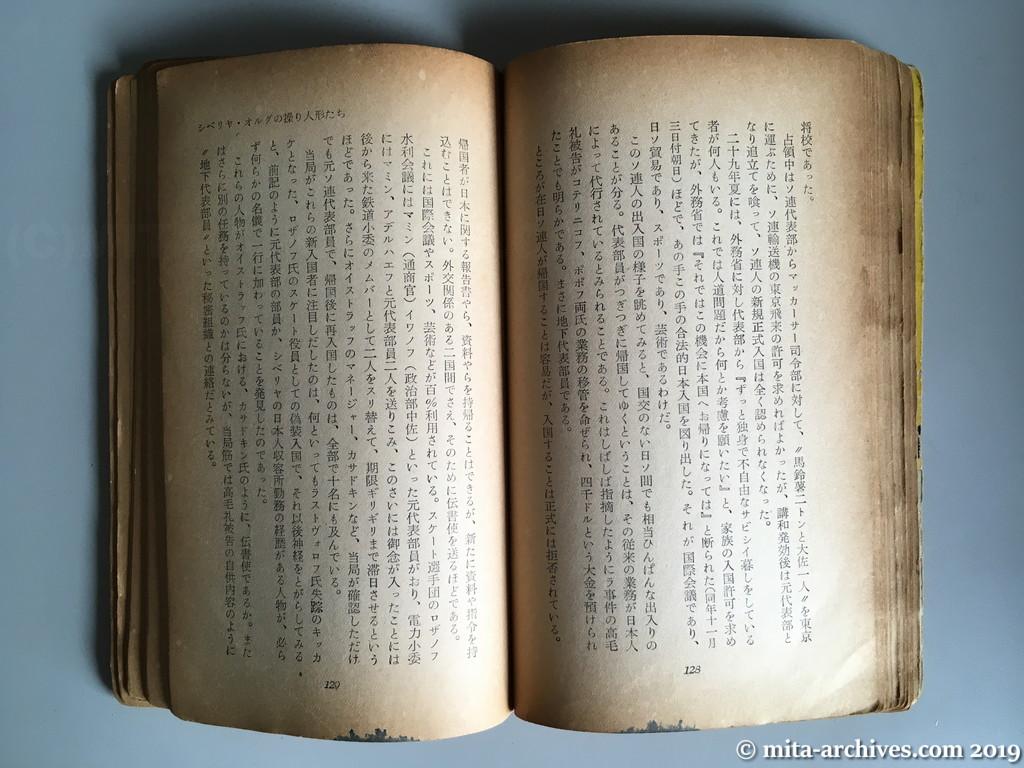 将校であった。
占領中はソ連代表部からマッカーサー司令部に対して、〝馬鈴薯二トンと大佐一人〟を東京
に運ぶために、ソ連輸送機の東京飛来の許可を求めればよかったが、講和発効後は元代表部と
なり追立てを喰って、ソ連人の新規正式入国は全く認められなくなった。
二十九年夏には、外務省に対し代表部から『ずっと独身で不自由なサビシイ暮しをしている
者が何人もいる。これでは人道問題だから何とか考慮を願いたい』と、家族の入国許可を求め
てきたが、外務省では『それではこの機会に本国へお帰りになっては』と断られた（同年十一月
三日付朝日）ほどで、あの手この手の合法的日本入国を図り出した。それが国際会議であり、
日ソ貿易であり、スポーツであり、芸術であるわけだ。
このソ連人の出入国の様子を眺めてみると、国交のない日ソ間でも相当ひんぱんな出入りの
あることが分る。代表部員がつぎつぎに帰国してゆくということは、その従来の業務が日本人
によって代行されているとみられることである。これはしばしば指摘したようにラ事件の高毛
礼被告がコテリニコフ、ポポフ両氏の業務の移管を命ぜられ、四千ドルという大金を預けられ
たことでも明らかである。まさに地下代表部員である。
ところが在日ソ連人が帰国することは容易だが、入国することは正式には拒否されている。
128
帰国者が日本に関する報告書やら、資料やらを持帰ることはできるが、新たに資料や指令を持
込むことはできない。外交関係のある二国間でさえ、そのために伝書使を送るほどである。
これには国際会議やスポーツ、芸術などが百％利用されている。スケート選手団のロザノフ
水利会議にはマミン（通商官）イワノフ（政治部中佐）といった元代表部員がおり、電力小委
にはマミン、アデルハエフと元代表部員二人を送りこみ、このさいには御念が入ったことには
後から来た鉄道小委のメムバーとして二人をスリ替えて、期限ギリギリまで滞日させるという
ほどであった。さらにオイストラッフのマネージャー、カサドキンなど、当局が確認しただけ
でも元ソ連代表部員で、帰国後に再入国したものは、全部で十名にも及んでいる。
当局がこれらの新入国者に注目しだしたのは、何といってもラストヴォロフ氏失踪のキッカ
ケとなった、ロザノフ氏のスケート役員としての偽装入国で、それ以後神経をとがらしてみる
と、前記のように元代表部の部員か、シベリヤの日本人収容所勤務の経歴がある人物が、必ら
ず何らかの名儀で一行に加わっていることを発見したのであった。
これらの人物がオイストラッフ氏における、カサドキン氏のように、伝書使であるか。また
はさらに別の任務を持っているのかは分らないが、当局筋では高毛礼被告の自供内容のように
〝地下代表部員〟といった秘密組織との連絡だとみている。
シベリヤ・オルグの操り人形たち
129
© mita-archives.com 2019